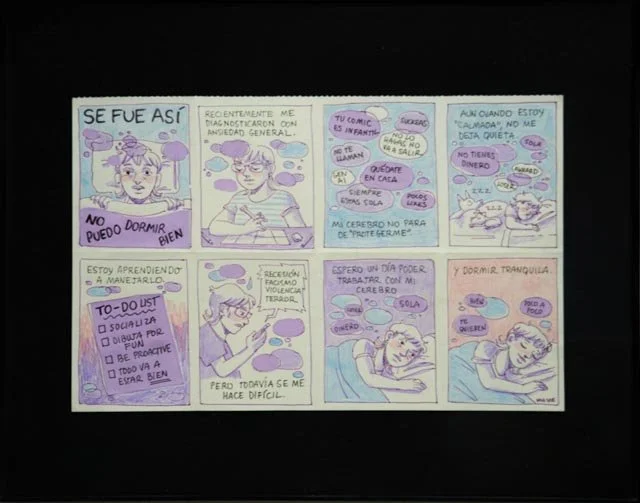 SE FUE ASÍ
NO
PUEDO DORMIR
BIEN
RECIENTEMENTE ME
DIAGNOSTICARON CON
ANSIEDAD GENERAL.
TU COMIC
ES INFANTIL
NO LO
HAGAS NO
VA A SALIR
NO TE
LLAMAN
QUÉDATE
EN CASA
SIEMPRE
ESTAS SOLA
POCOS
LIKES
MI CEREBRO NO PARA
DE "PROTEGERME".
AUN CUANDO ESTOY
"CALMADA", NO ME
DEJA QUIETA.
SOLA
NO TIENES
DINERO
AWKWARD
LOSER
ZZZ
ZZZ
ESTOY APRENDIENDO
A MANEJARLO.
TO-DO LIST
SOCIALIZA
DIBUJA POR
FUN
BE PROACTIVE
TODO VA A
ESTAR BIEN
RECESIÓN
FACISMO
VIOLENCIA
TERROR
PERO TODAVÍA SE ME
HACE DIFÍCIL.
ESPERO UN DÍA PODER
TRABAJAR CON MI
CEREBRO
SOLA
DINERO
Y DORMIR TRANQUILA.
BIEN
POCO A
POCO
TE
QUIEREN